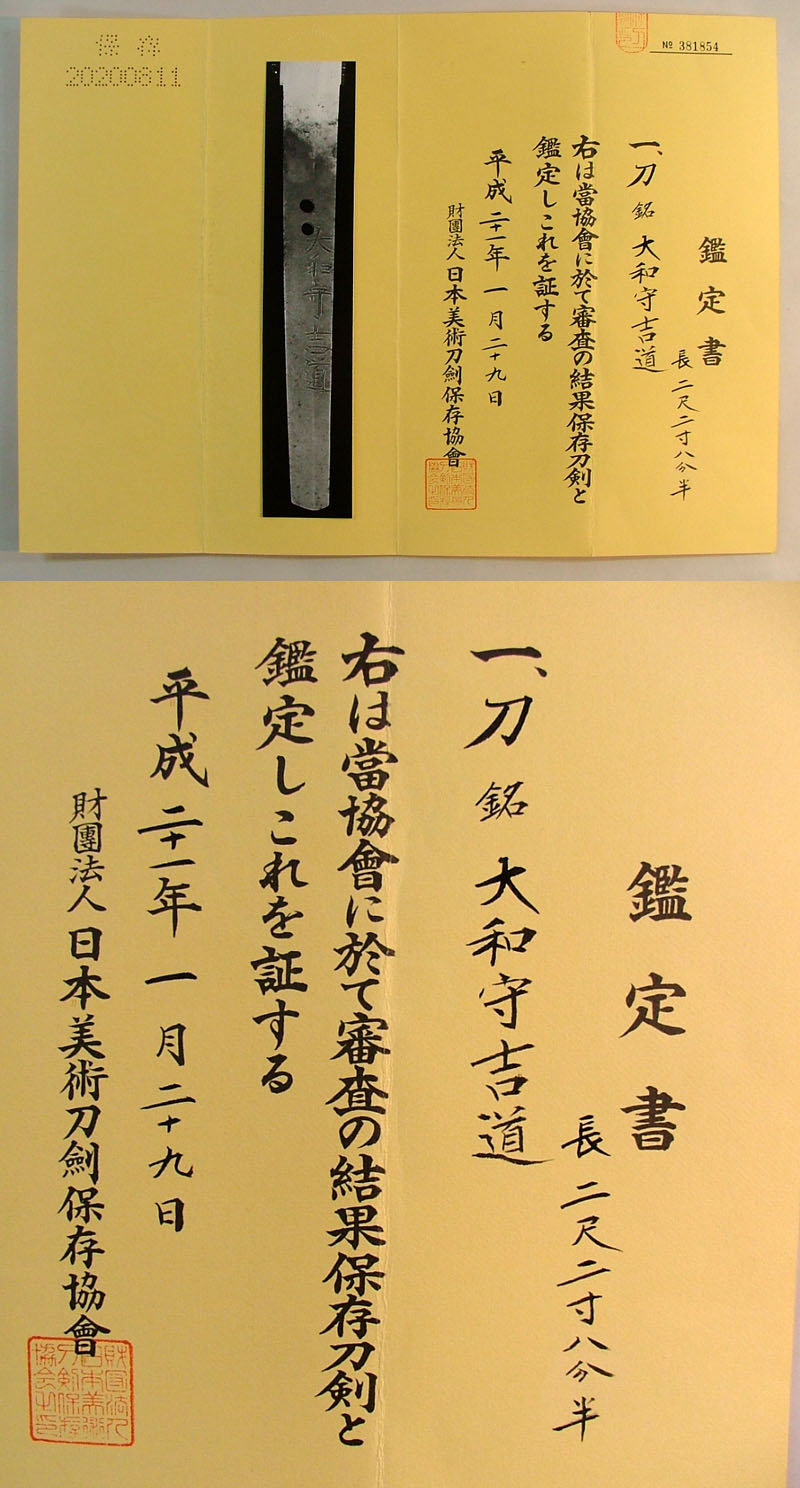 保存
20200811
№ 381854
鑑定書
長 二尺二寸八分半
一、刀 銘 大和守吉道
右は當協會に於て審査の結果保存刀剣と
鑑定しこれを証する
平成二十一年一月二十九日
財團法人 日本美術刀劍保存協會
大和守吉道
鑑定書
長 二尺二寸八分半
一、刀 銘 大和守吉道
右は當協會に於て審査の結果保存刀剣と
鑑定しこれを証する
平成二十一年一月二十九日
財團法人 日本美術刀劍保存協會